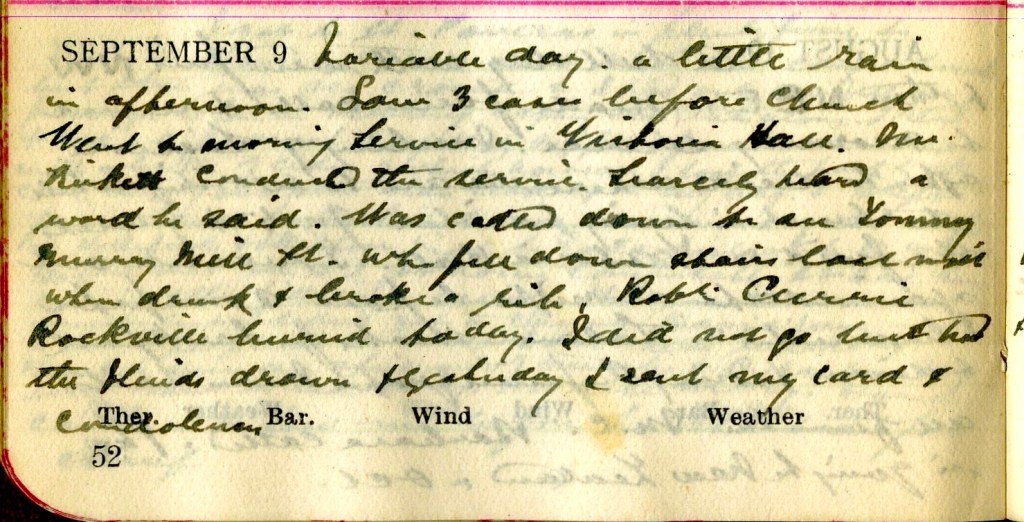 SEPTEMBER 9 Variable day. a little rain
in afternoon. Saw 3 cases before Church
Went to morning Service in Victoria Hall. Mr.
Rickett conducted the service. Scarcely heard a
word he said. Was called down to see Tommy
Murray Mill St. who fell down stairs last night
when drunk & broke a rib. Robt. Currie
Rockville buried today. I did not go but had
the blinds drawn & yesterday I sent my card &
condolences
Ther. Bar. Wind Weather
52